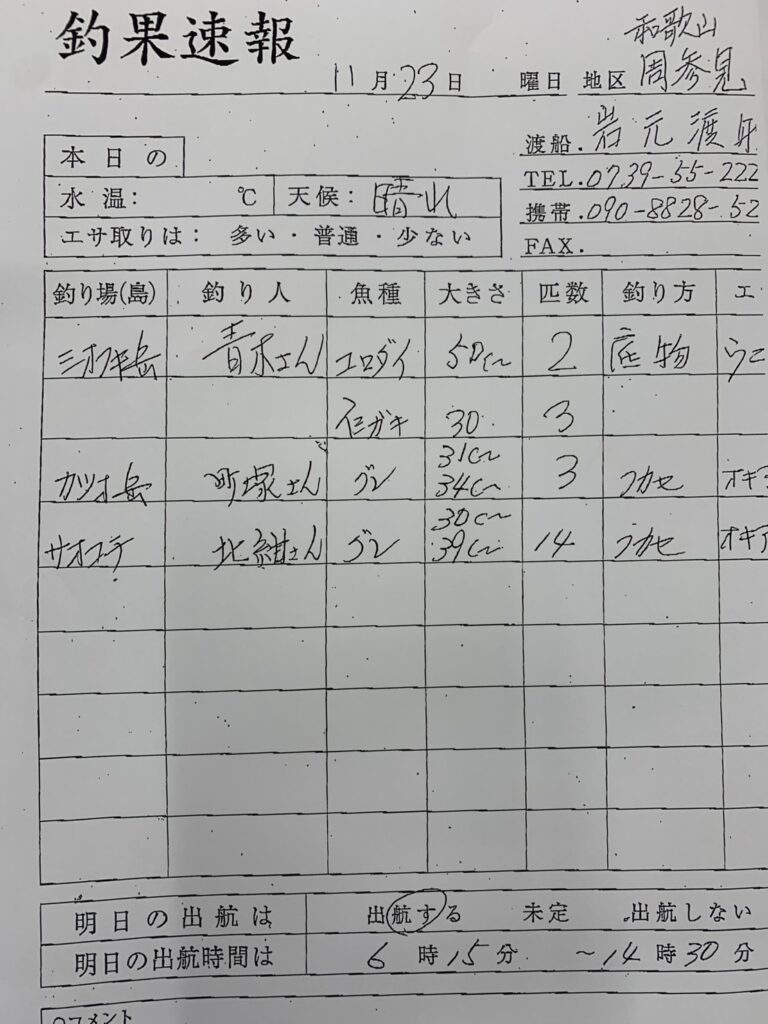 釣果速報
和歌山
11月23日 曜日 地区 周参見
渡船. 岩元渡
TEL. 0739-55-222
携帯. 090-8828-52
FAX.
本日の
水温: ℃ 天候: 晴れ
エサ取りは: 多い・普通・少ない
釣り場(島) 釣り人 魚種 大きさ 匹数 釣り方 エ
岳 青木さん コロダイ 50cm 2 底物 うに
イシガキ 30 3
31cm~
カツオ岳 町塚さん グレ 34cm 3 フカセ オキア
30cm~
サオコテ 北紺さん グレ 39cm 14 フカセ オキア
明日の出航は 出航する 未定 出航しない
明日の出航時間は 6時15分 ~14時30分
コメント